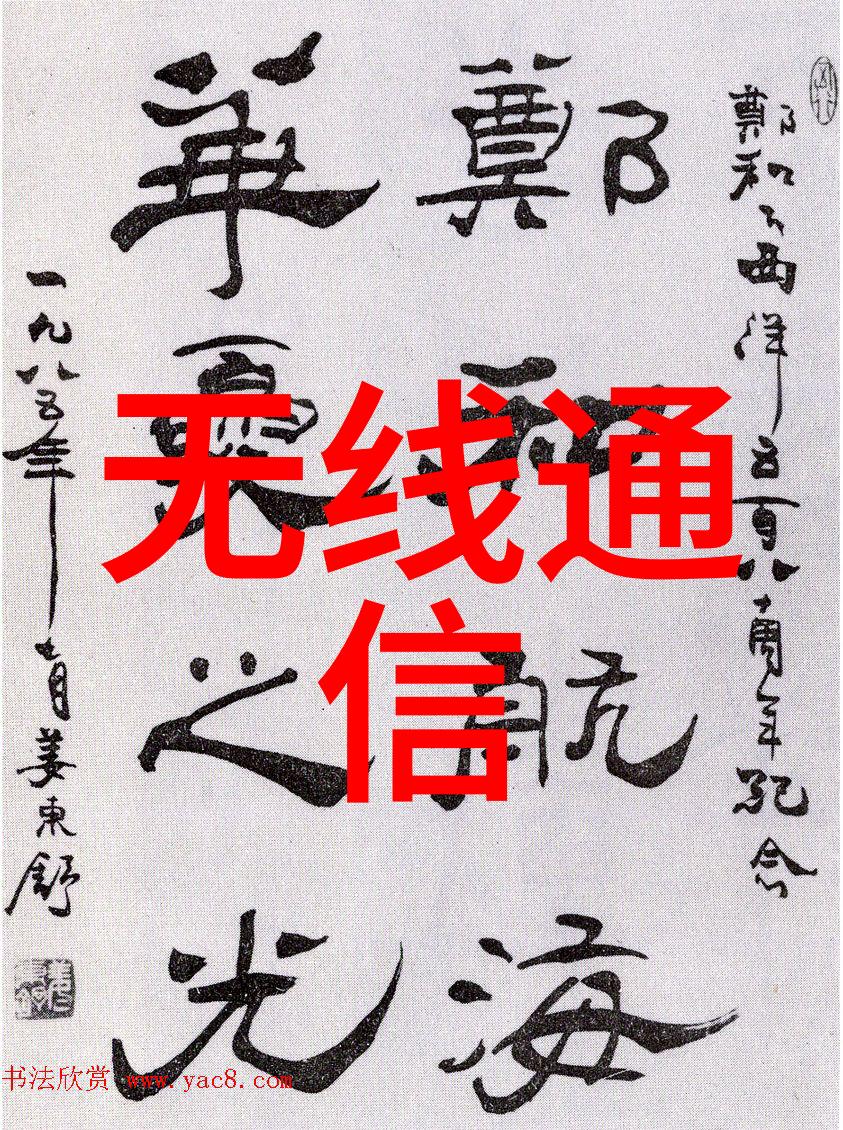 鄭和下西洋五百八十周年紀念
鄭和航海
華夏之光
一九八五年七月姜東舒
无线通
信
书法欣赏 www.yac8.com